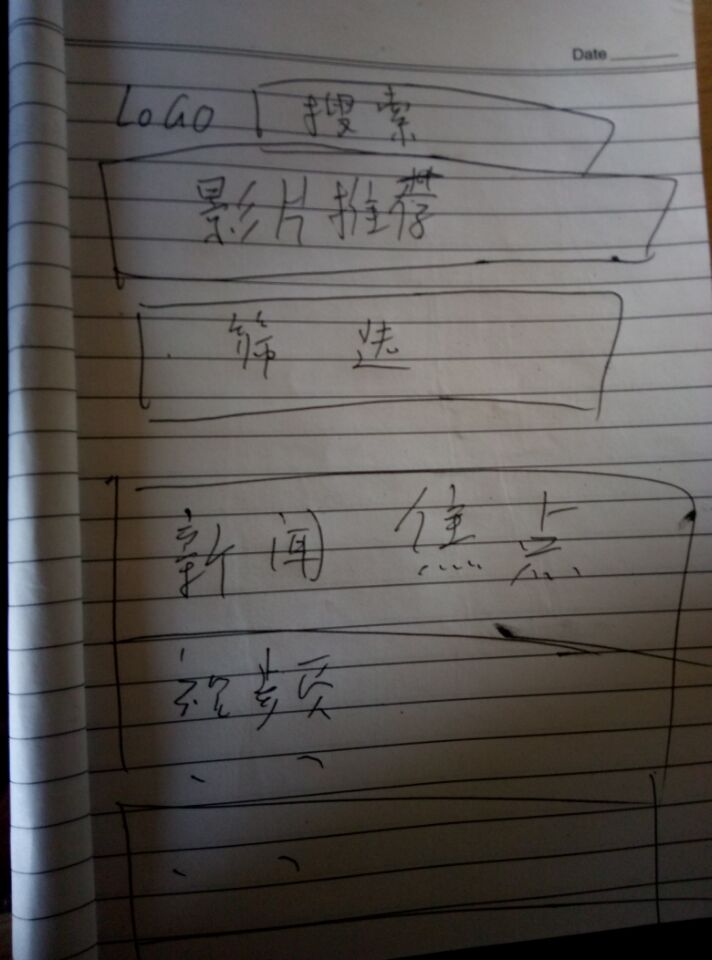 Date
LOGO 搜索
影片推荐
筛 选
新闻 焦点
视频